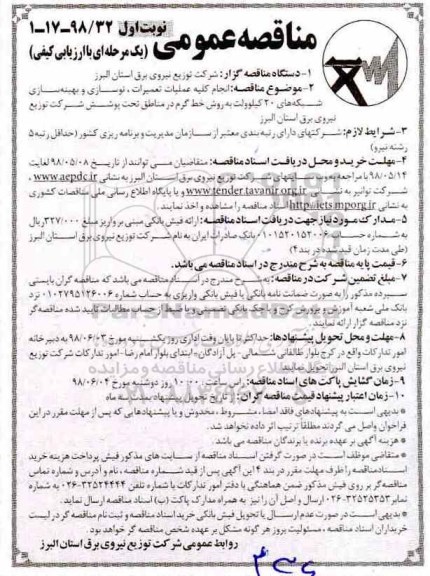 مناقصه عمومی نوبت اول ۹۸/۳۲-۱۷-۱
(یک مرحله‌ای با ارزیابی کیفی)
۱-دستگاه مناقصه گزار: شرکت توزیع نیروی برق استان البرز
۲-موضوع مناقصه: انجام کلیه عملیات تعمیرات ، نوسازی و بهینه‌سازی
شبکه‌های ۲۰ کیلوولت به روش خط گرم در مناطق تحت پوشش شرکت توزیع
نیروی برق استان البرز
۳-شرایط لازم: شرکتهای دارای رتبه‌بندی معتبر از سازمان مدیریت و برنامه ریزی کشور (حداقل رتبه ۵
رشته نیرو)
۴-مهلت خرید و محل دریافت اسناد مناقصه: متقاضیان می توانند از تاریخ ۹۸/۰۵/۰۸ لغایت
۹۸/۰۵/۱۴ با مراجعه به سایتهای شرکت توزیع نیروی برق استان البرز به نشانی www.aepdc.ir ،
شرکت توانیر به نشانی www.tender.tavanir.org.ir و یا پایگاه اطلاع رسانی ملی مناقصات کشوری
به نشانی http://iets.mporg.ir اسناد مناقصه را مشاهده و اخذ نمایند .
۵-مدارک مورد نیاز جهت دریافت اسناد مناقصه: ارائه فیش بانکی مبنی بر واریز مبلغ ۳۲۷/۰۰۰ ریال
به شماره حساب ۰۱۰۱۵۲۰۱۵۲۰۰۶ بانک صادرات ایران به نام شرکت توزیع نیروی برق استان البرز
(طی مدت زمان قید شده در بند ۴)
۶-قیمت پایه مناقصه به شرح مندرج در اسناد مناقصه می باشد.
۷-مبلغ تضمین شرکت در مناقصه: به شرح مندرج در اسناد مناقصه می باشد که مناقصه گران بایستی
سپرده مذکور را به صورت ضمانت نامه بانکی یا فیش بانکی واریزی به حساب شماره ۰۱۰۲۷۹۵۱۲۶۰۰۶ نزد
بانک ملی شعبه آموزش و پرورش کرج و یا چک بانکی تضمینی و یا ضبط از حساب مطالبات تایید شده مناقصه گر
نزد مناقصه گزار ارائه نمایند.
۸-مهلت و محل تحویل پیشنهادها: حداکثر تا پایان وقت اداری روز یکشنبه مورخ ۹۸/۰۶/۰۳ به دبیرخانه
امور تدارکات واقع در کرج بلوار طالقانی شمالی- پل آزادگان-ابتدای بلوار امام رضا- امور تدارکات شرکت توزیع
نیروی برق استان البرز تحویل نمایند.
۹-زمان گشایش پاکت های اسناد مناقصه: راس ساعت ۱۰:۰۰ روز دوشنبه مورخ ۹۸/۰۶/۰۴
۱۰-زمان اعتبار پیشنهاد قیمت مناقصه گران: از تاریخ تحویل پیشنهاد بمدت سه ماه
* بدیهی است به پیشنهادهای فاقد امضا ، مشروط ، مخدوش و یا پیشنهادهایی که پس از مهلت مقرر در این
فراخوان واصل می گردند مطلقاً ترتیب اثر داده نخواهد شد.
* هزینه آگهی بر عهده برنده یا برندگان مناقصه می باشد.
* متقاضی موظف است در صورت گرفتن اسناد مناقصه از سایت های مذکور فیش پرداخت هزینه خرید
اسناد مناقصه را ظرف مهلت مقرر در بند ۴ این آگهی پس از قید شماره مناقصه ، نام و آدرس و شماره تماس
مناقصه گر بر روی فیش مذکور ضمن هماهنگی با دفتر امور تدارکات با شماره تلفن ۳۲۵۲۴۴۴۴-۰۲۶ به شماره
نمابر ۳۲۵۲۵۳۵۳-۰۲۶ ارسال و اصل آن را نیز به همراه مدارک پاکت (ب) اسناد مناقصه ارسال نماید.
* بدیهی است در صورت عدم ارسال یا تحویل فیش بانکی خرید اسناد مناقصه و ثبت نام مناقصه گر در لیست
خریداران اسناد مناقصه ، مسئولیت بروز هر گونه مشکل بر عهده شخص مناقصه گر خواهد بود.
روابط عمومی شرکت توزیع نیروی برق استان البرز